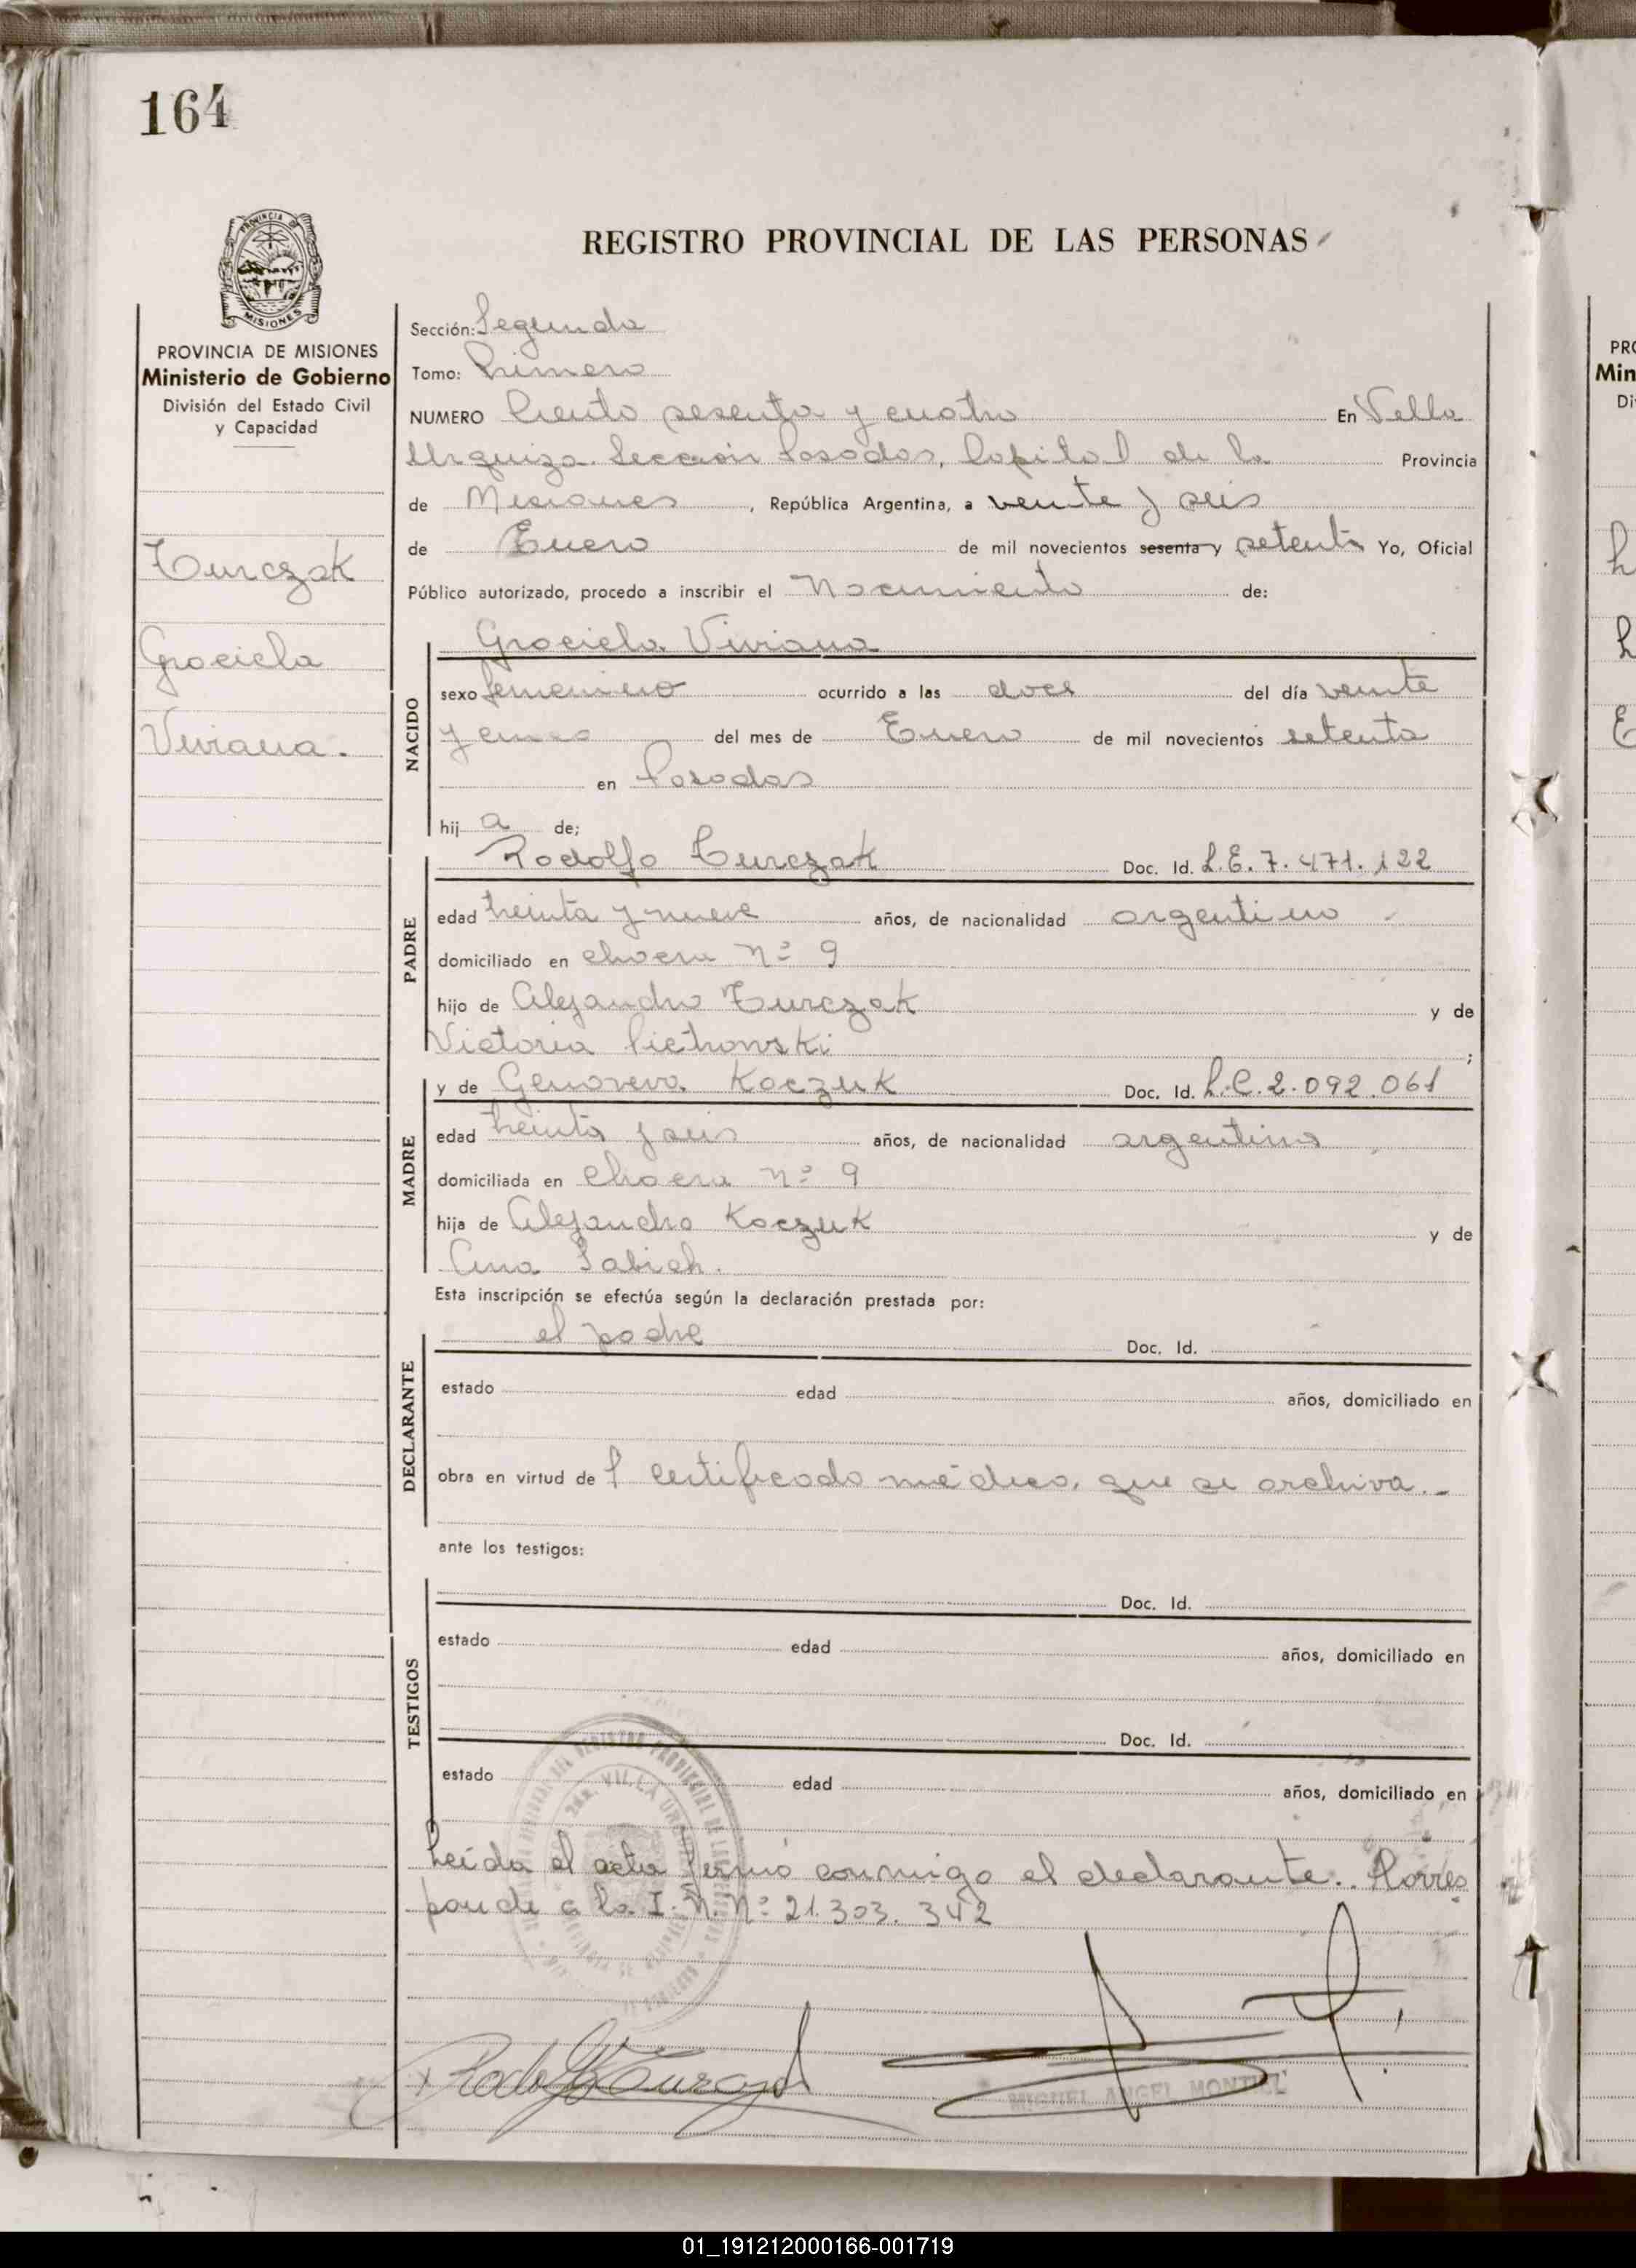 164
REGISTRO PROVINCIAL DE LAS PERSONAS
PROVINCIA DE
MISIONES
PROVINCIA DE MISIONES
Ministerio de Gobierno
División del Estado Civil
y Capacidad
Turczak
Graciela
Viviana.
Sección: Segunda
Tomo: Primero
NUMERO Ciento sesenta y cuatro En Villa
Urquiza Sección Posadas, Capital de la Provincia
de Misiones, República Argentina, a veinte y seis
de Enero de mil novecientos sesenta y setenta Yo, Oficial
Público autorizado, procedo a inscribir el Nacimiento de:
NACIDO
Graciela Viviana
sexo femenino ocurrido a las doce del día veinte
y cinco del mes de Enero de mil novecientos setenta
en Posadas
hij a de;
PADRE
Rodolfo Turczak Doc. Id. L.E. 7.471.122
edad treinta y nueve años, de nacionalidad argentino
domiciliado en chacra nº 9
hijo de Alejandro Turczak y de
Victoria Pietrowski ;
MADRE
y de Genoveva Koczuk Doc. Id. L.C. 2.092.061
edad treinta y seis años, de nacionalidad argentina
domiciliada en chacra nº 9
hija de Alejandro Koczuk y de
Ana Sabich.
Esta inscripción se efectúa según la declaración prestada por:
DECLARANTE
el padre Doc. Id.
estado edad años, domiciliado en
obra en virtud de l certificado médico, que se archiva.-
ante los testigos:
TESTIGOS
Doc. Id.
estado edad años, domiciliado en
Doc. Id.
estado edad años, domiciliado en
Leída el acta firmó conmigo el declarante. Corres
ponde a la I. N. Nº 21.303.342
Rodolfo Turczak
MIGUEL ANGEL MONTIEL
PRO
Min
Di
01_191212000166-001719